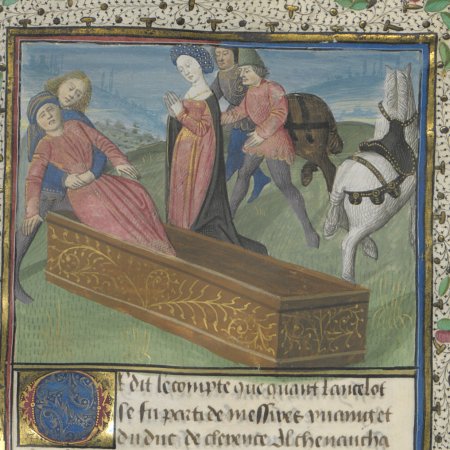 Or dit le compte que quant lancelot
se fu parti de messire yuain et
du duc de clerence Il cheuaucha